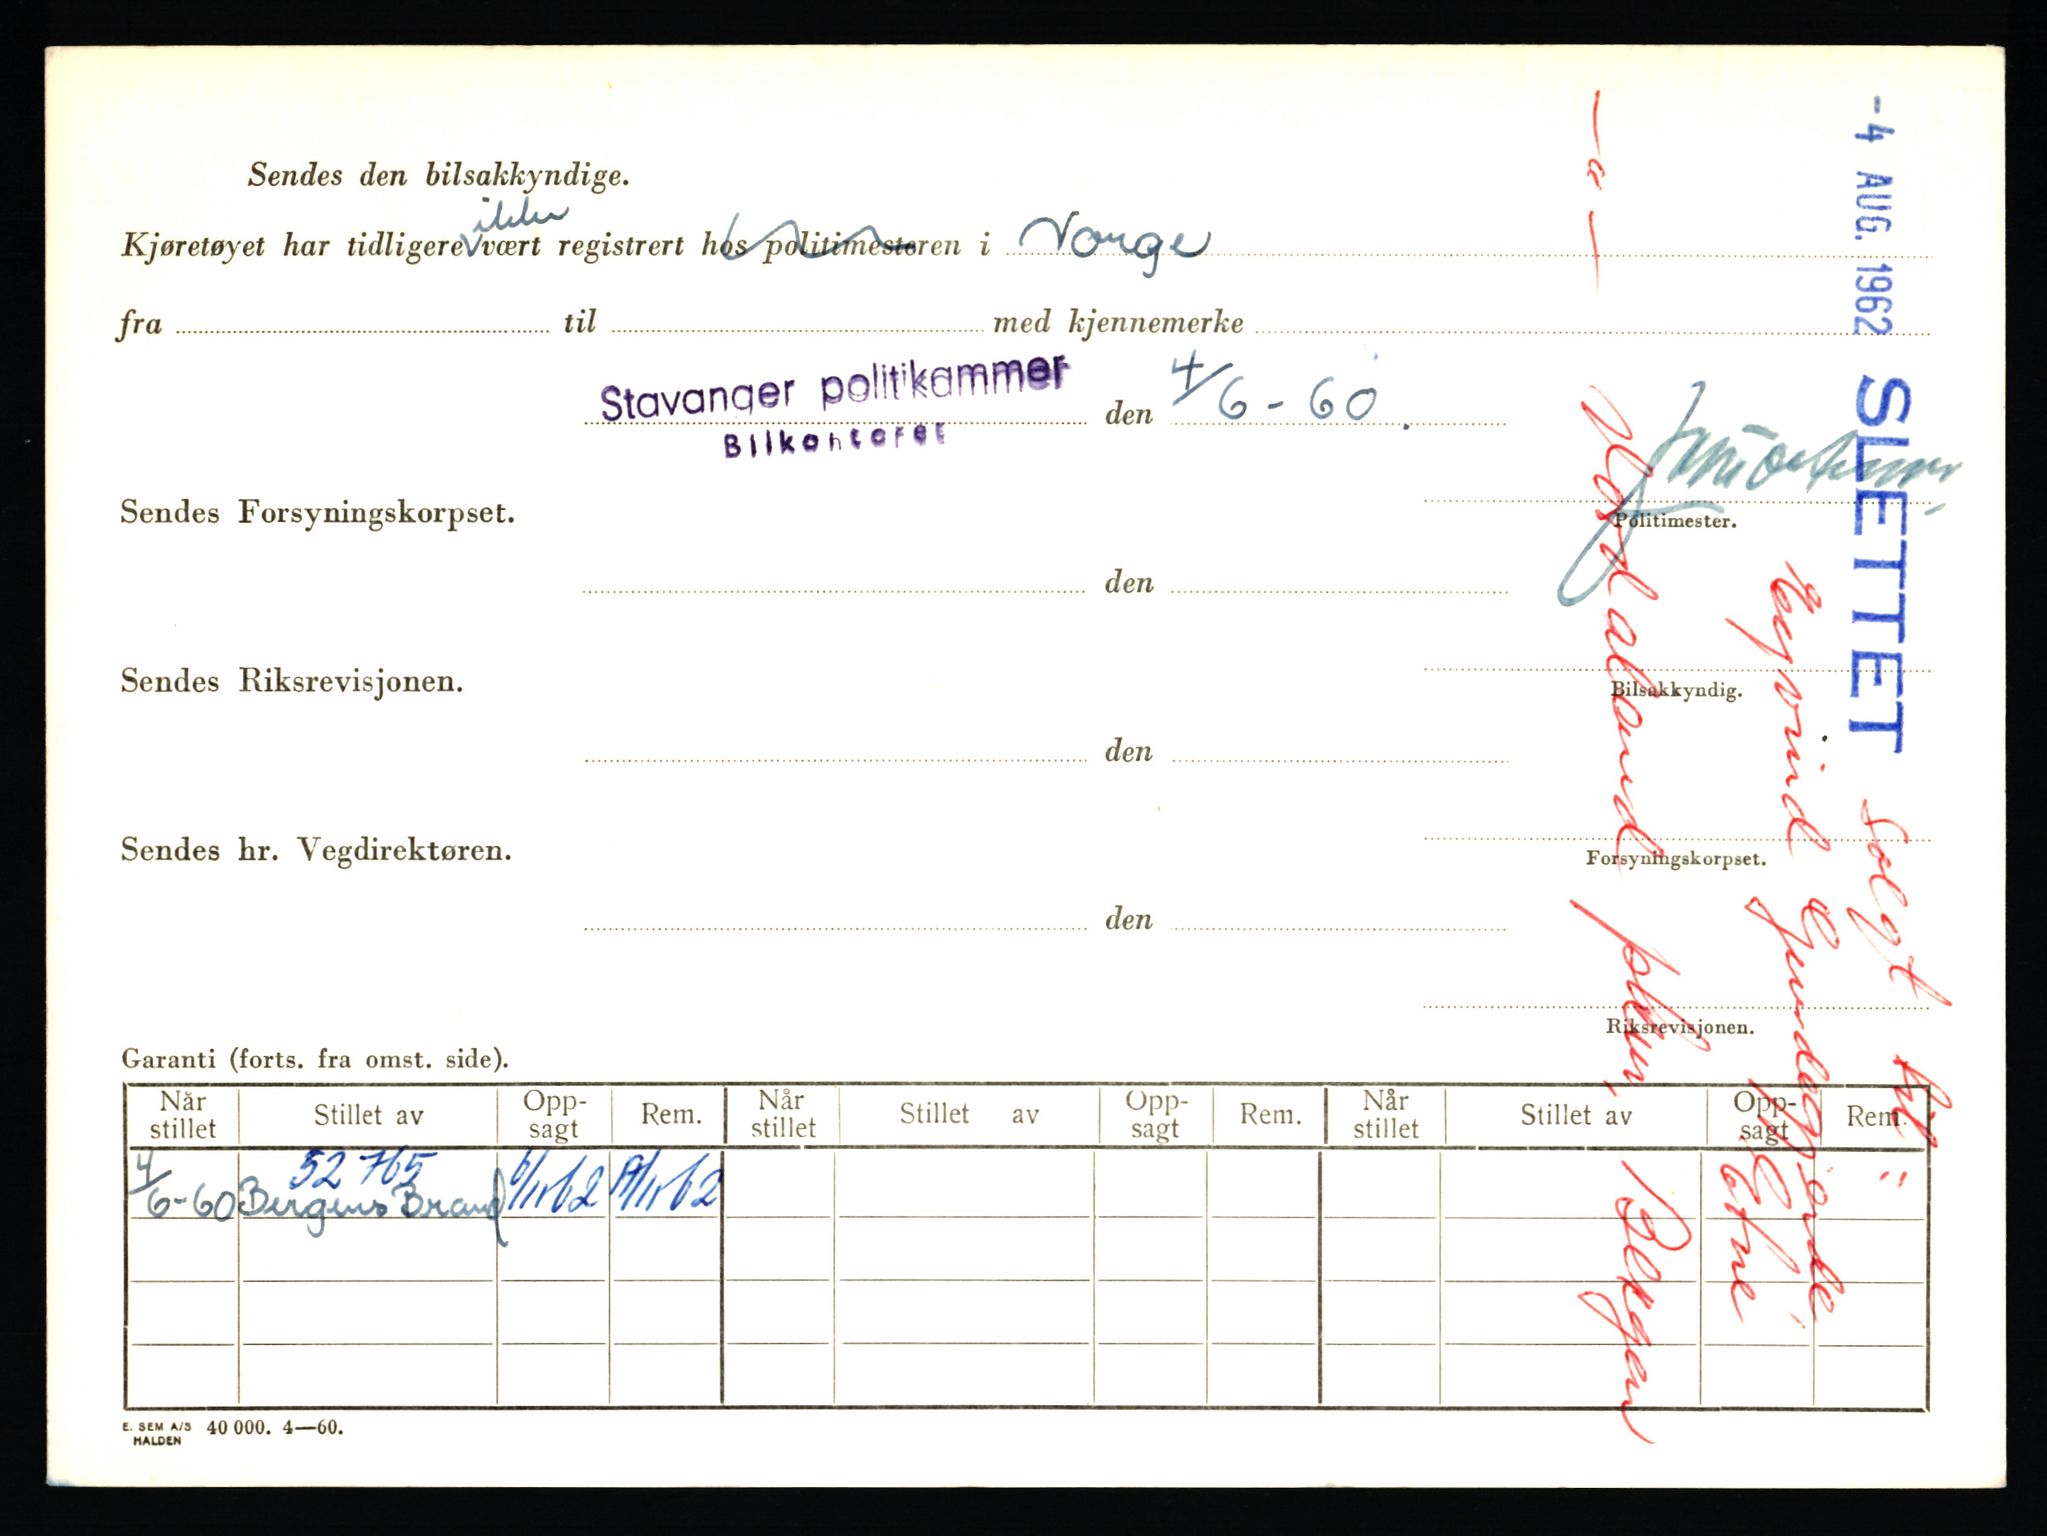 Sendes den bilsakkyndige.
ikke
Kjøretøyet har tidligere vært registrert hos politimesteren i Norge
fra til med kjennemerke
Stavanger politikammer
Bilkontoret
den 4/6-60
Politimester.
Sendes Forsyningskorpset.
den
Bilsakkyndig.
Sendes Riksrevisjonen.
den
Forsyningskorpset.
Sendes hr. Vegdirektøren.
den
Riksrevisjonen.
Garanti (forts. fra omst. side).
Når stillet Stillet av Opp-sagt Rem. Når stillet Stillet av Opp-sagt Rem. Når stillet Stillet av Opp-sagt Rem.
52765
4/6-60 Bergens Brand
E. SEM A/S HALDEN 40 000. 4—60.
-4 AUG. 1962 SLETTET Solgt til:
Eyvind
Etne
Hordaland Bergen